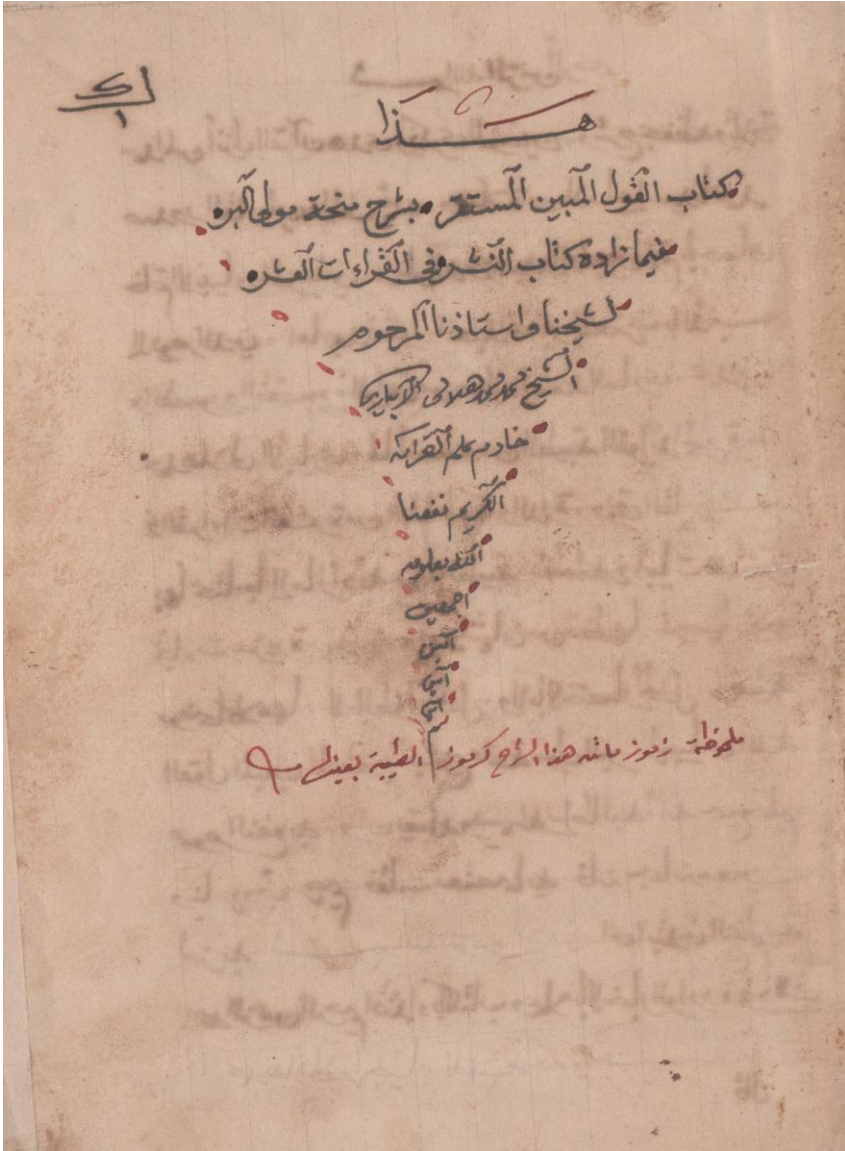 ك
١
هذا
كتاب القول المبين المستقر بشرح منحة مولى البره
فيما زاده كتاب النشر فى القراءات العشره
لشيخنا واستاذنا المرحوم
الشيخ محمد محمد هلالى الابيارى
خادم علم القراءة
الكريم نفعنا
الله بعلومه
اجمعين
آمين
آمين
ملحوظة رموز متن هذا الشرح كرموز الطيبة بعينها